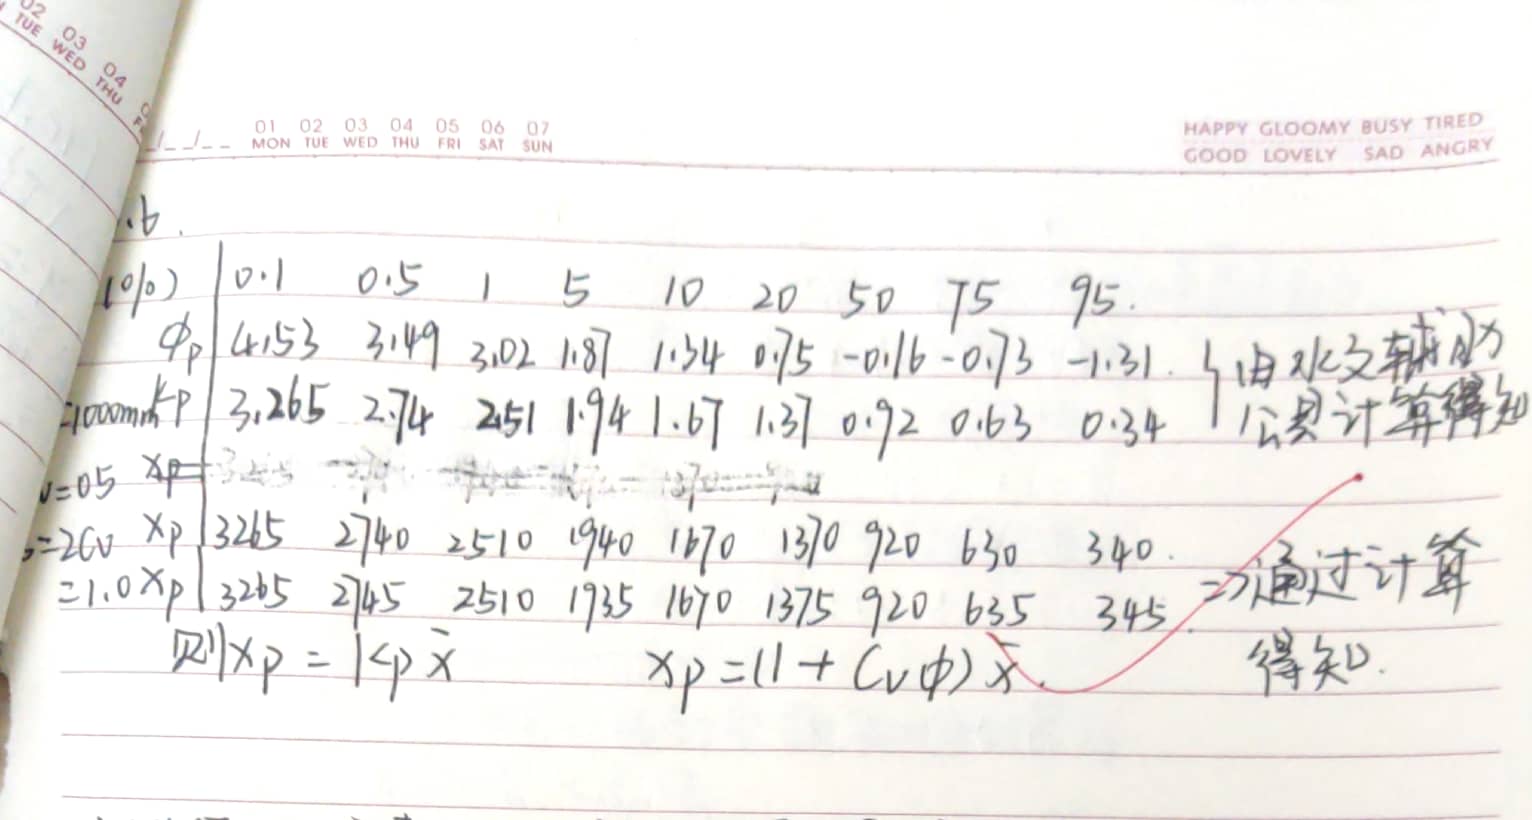 02 03 04
TUE WED THU
01 02 03 04 05 06 07
MON TUE WED THU FRI SAT SUN
HAPPY GLOOMY BUSY TIRED
GOOD LOVELY SAD ANGRY
.6.
(%) 0.1 0.5 1 5 10 20 50 75 95.
φp 4.53 3.49 3.02 1.87 1.34 0.75 -0.16 -0.73 -1.31. } 由水文辅助
=1000mm Kp 3.265 2.74 2.51 1.94 1.67 1.37 0.92 0.63 0.34 公具计算得知
=0.5 xp
=2Cv xp 3265 2740 2510 1940 1670 1370 920 630 340.
=1.0 xp 3265 2745 2510 1935 1670 1375 920 635 345. => 通过计算
则xp = Kp x̄ xp = (1 + Cvφ) x̄. 得知.